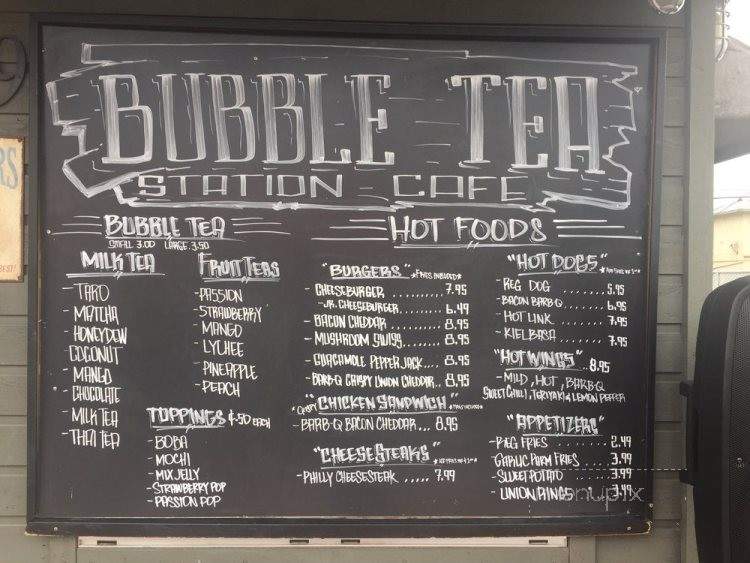 BUBBLE TEA
STATION CAFE
BUBBLE TEA
SMALL 3.00 LARGE 3.50
MILK TEA
- TARO
- MATCHA
- HONEYDEW
COCONUT
- MANGO
- CHOCOLATE
- MILK TEA
- THAI TEA
FRUIT TEAS
- PASSION
- STRAWBERRY
- MANGO
- LYCHEE
- PINEAPPLE
- PEACH
TOPPINGS +.50 EACH
- BOBA
- MOCHI
- MIX JELLY
- STRAWBERRY POP
- PASSION POP
HOT FOODS
"BURGERS" *FRIES INCLUDED*
- CHEESEBURGER ........ 7.95
- JR. CHEESEBURGER ....... 6.49
- BACON CHEDDAR ....... 8.95
- MUSHROOM SWISS ...... 8.95
- GUACAMOLE PEPPER JACK ... 8.95
- BARB-Q CRISPY UNION CHEDDAR .. 8.95
"CRISPY CHICKEN SANDWICH"
- BARB-Q BACON CHEDDAR .... 8.95
"CHEESESTEAKS"
- PHILLY CHEESESTEAK ..... 7.99
"HOT DOGS"
- REG DOG ..... 5.95
- BACON BARBQ ..... 6.95
- HOT LINK ..... 7.95
- KIELBASA .... 7.95
"HOT WINGS" .. 8.95
- MILD, HOT, BARB-Q
SWEET CHILI, TERIYAKI & LEMON PEPPER
"APPETIZERS"
- REG FRIES ....... 2.49
- GARLIC PARM FRIES .... 3.99
- SWEET POTATO ..... 3.99
- UNION RINGS 3.49